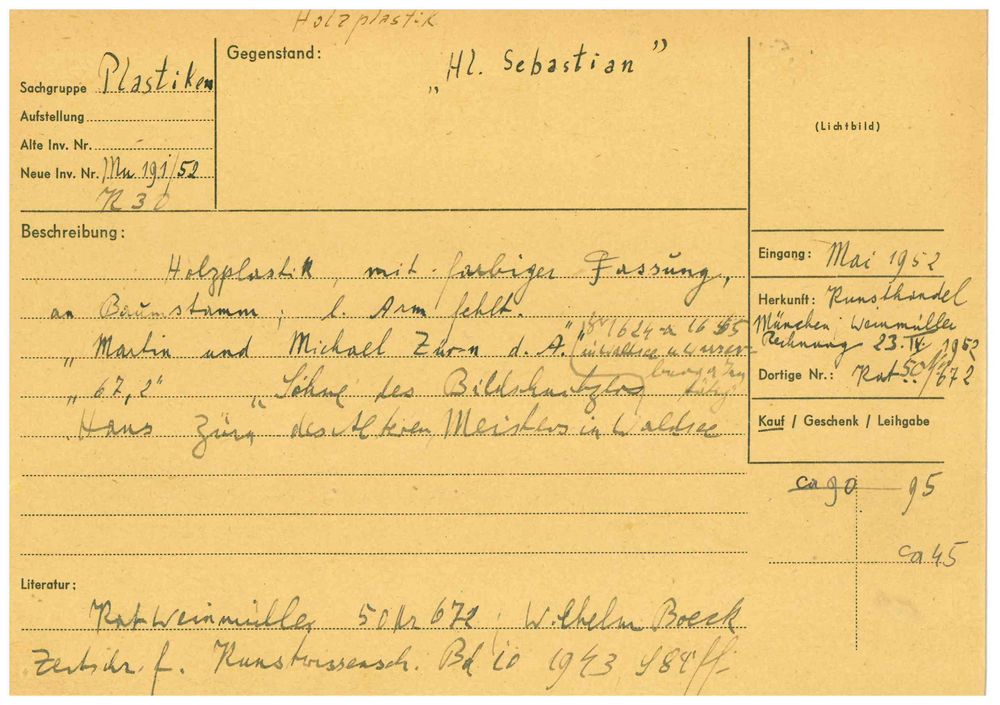 Holzplastik
Sachgruppe Plastiken
Aufstellung
Alte Inv. Nr.
Neue Inv. Nr. Mu 191/52
K 30
Gegenstand:
„Hl. Sebastian”
(Lichtbild)
Beschreibung:
Holzplastik, mit farbiger Fassung,
an Baumstamm; l. Arm fehlt.
„Martin und Michael Zürn d. Ä.”
in Waldsee u.
„67,2” „Söhne des
Hans Zürn des Älteren, Meisters in Waldsee
Eingang: Mai 1952
Herkunft: Kunsthandel
München: Weinmüller
Rechnung 23. IV. 1952
Dortige Nr.: Kat 50 Nr/672
Kauf / Geschenk / Leihgabe
ca 90 95
ca 45
Literatur:
Kat Weinmüller 50 Nr 672; Wilhelm Boeck
Zeitschr. f. Kunstwissensch. Bd 10 1943 S 84 ff